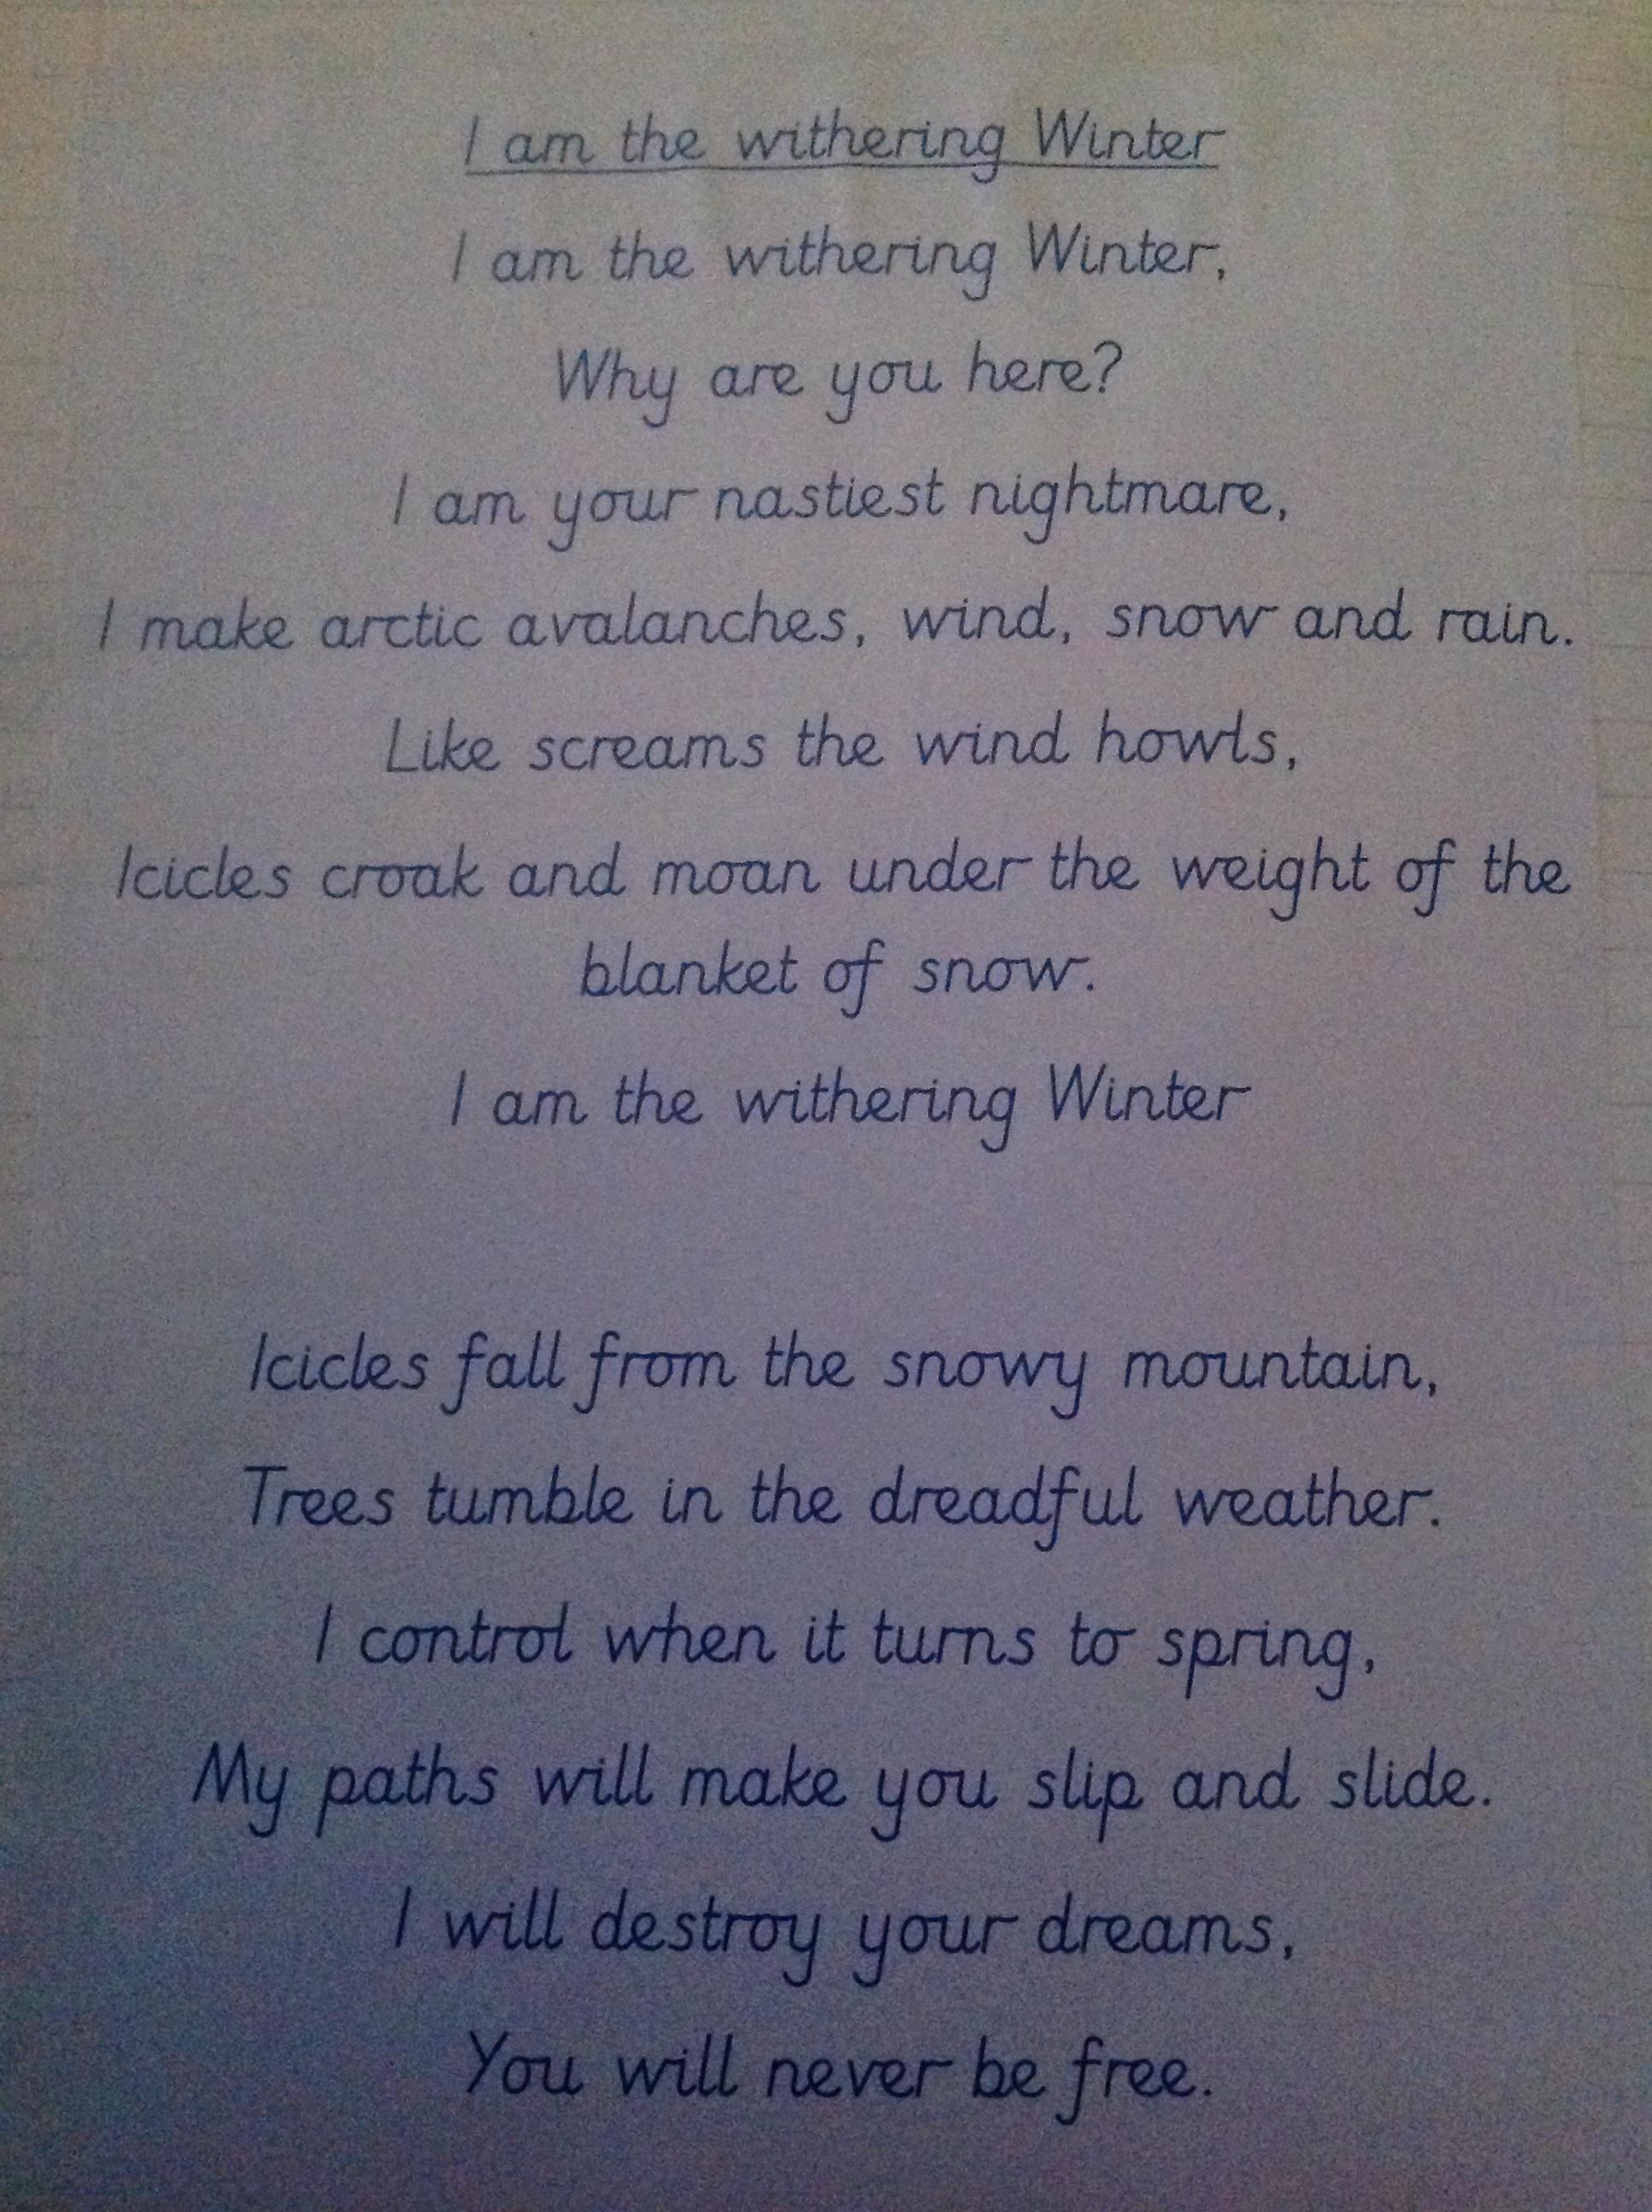 I am the withering Winter
I am the withering Winter,
Why are you here?
I am your nastiest nightmare,
I make arctic avalanches, wind, snow and rain.
Like screams the wind howls,
Icicles croak and moan under the weight of the
blanket of snow.
I am the withering Winter
Icicles fall from the snowy mountain,
Trees tumble in the dreadful weather.
I control when it turns to spring,
My paths will make you slip and slide.
I will destroy your dreams,
You will never be free.